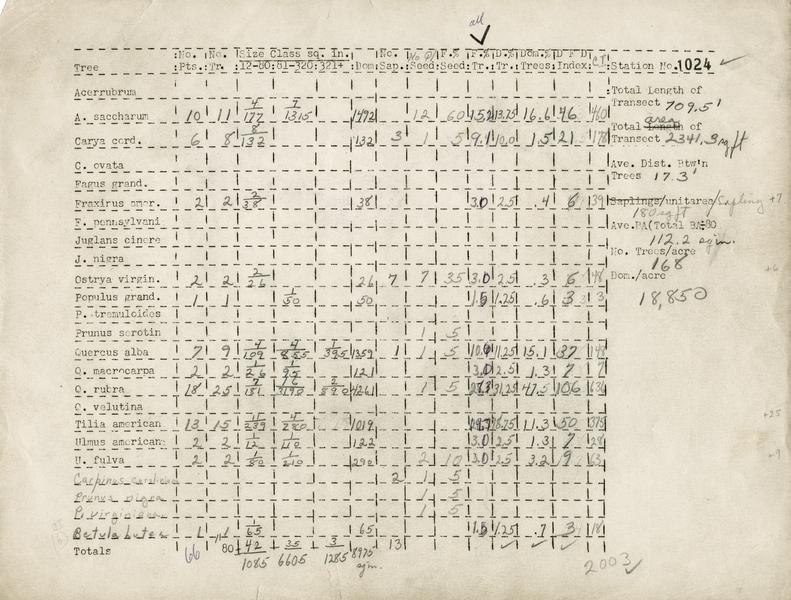 all
No. No. Size Class sq. In. No. No. Of F.% F.% D.% Dom.% D F D C.I.
Tree Pts. Tr. 12-80 81-320 321+ Dom Sap. Seed Seed Tr. Tr. Trees Index Station No. 1024
Acerrubrum Total Length of
Transect 709.5'
A. saccharum 10 11 4/177 7/1315 1492 12 60 15.2 13.75 16.6 46 460
Total length area of
Carya cord. 6 8 8/132 132 3 1 5 9.1 10.0 1.5 21 178 Transect 2341.3 sq ft
C. ovata Ave. Dist. Btw'n
Fagus grand. Trees 17.3'
Fraxirus amer. 2 2 2/38 38 3.0 2.5 .4 6 39 Saplings/unitarea/Sapling +7
180 sq ft
F. pennsylvani Ave.BA(Total BA÷80
Juglans cinere 112.2 sq in.
J. nigra No. Trees/acre
168
Ostrya virgin. 2 2 2/26 26 7 7 35 3.0 2.5 .3 6 48 Dom./acre +6
Populus grand. 1 1 1/50 50 1.5 1.25 .6 3 3 18,850
P. tremuloides
Prunus serotin 1 5
Quercus alba 7 9 4/109 4/855 1/395 1359 1 1 5 10.6 11.25 15.1 37 148
Q. macrocarpa 2 2 1/26 1/95 121 3.0 2.5 1.3 7 7
Q. rubra 18 25 7/181 16/3190 2/890 4261 1 5 27.3 31.25 47.5 106 636
C. velutina
Tilia american 13 15 11/239 4/780 1019 19.7 18.75 11.3 50 375 +25
Ulmus american 2 2 1/12 1/110 122 3.0 2.5 1.3 7 28
U. fulva 2 2 1/80 1/210 290 2 10 3.0 2.5 3.2 9 63 +9
Carpinus caroliniana 2 1 5
Prunus nigra 1 5
P. virginiana 1 5
Betula lutea 1 1 1/65 65 1.5 1.25 .7 3 18
Totals 66 80 42/1085 35/6605 3/1285 8975 sq in. 13
2003